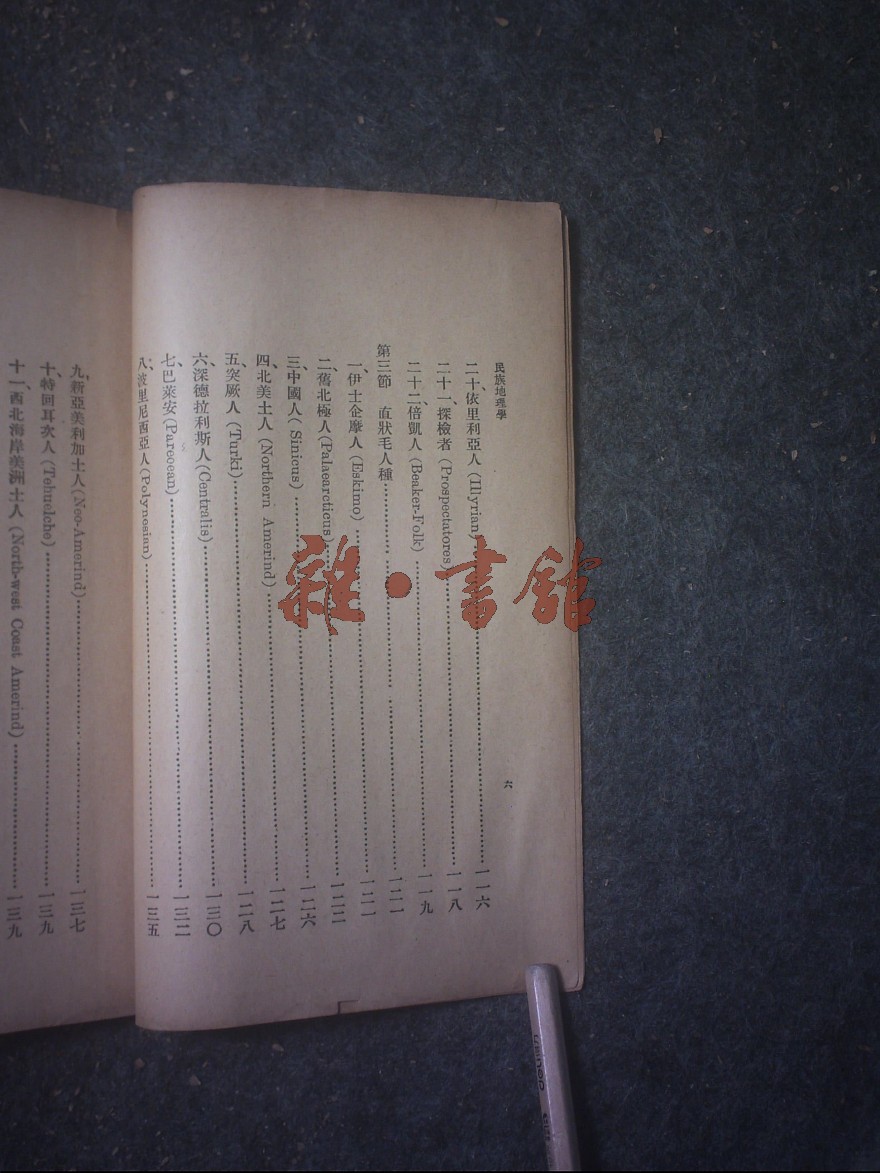 民族地理學
六
二十、依里利亞人(Illyrian)……一一六
二十一、探檢者(Prospectatores)……一一八
二十二、倍凱人(Beaker-Folk)……一一九
第三節 直狀毛人種……一二一
一、伊士企摩人(Eskimo)……一二一
二、舊北極人(Palaearcticus)……一二二
三、中國人(Sinicus)……一二六
四、北美土人(Northern Amerind)……一二七
五、突厥人(Turki)……一二八
六、深德拉利斯人(Centralis)……一三〇
七、巴萊安(Pareoean)……一三二
八、波里尼西亞人(Polynesian)……一三五
九、新亞美利加土人(Neo-Amerind)……一三七
十、特回耳次人(Tehuelche)……一三九
十一、西北海岸美洲土人(North-west Coast Amerind)……一三九
雜·書館